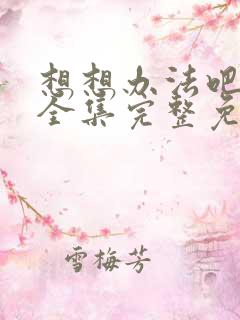 想想办法吧
全集完整免
雪梅芳